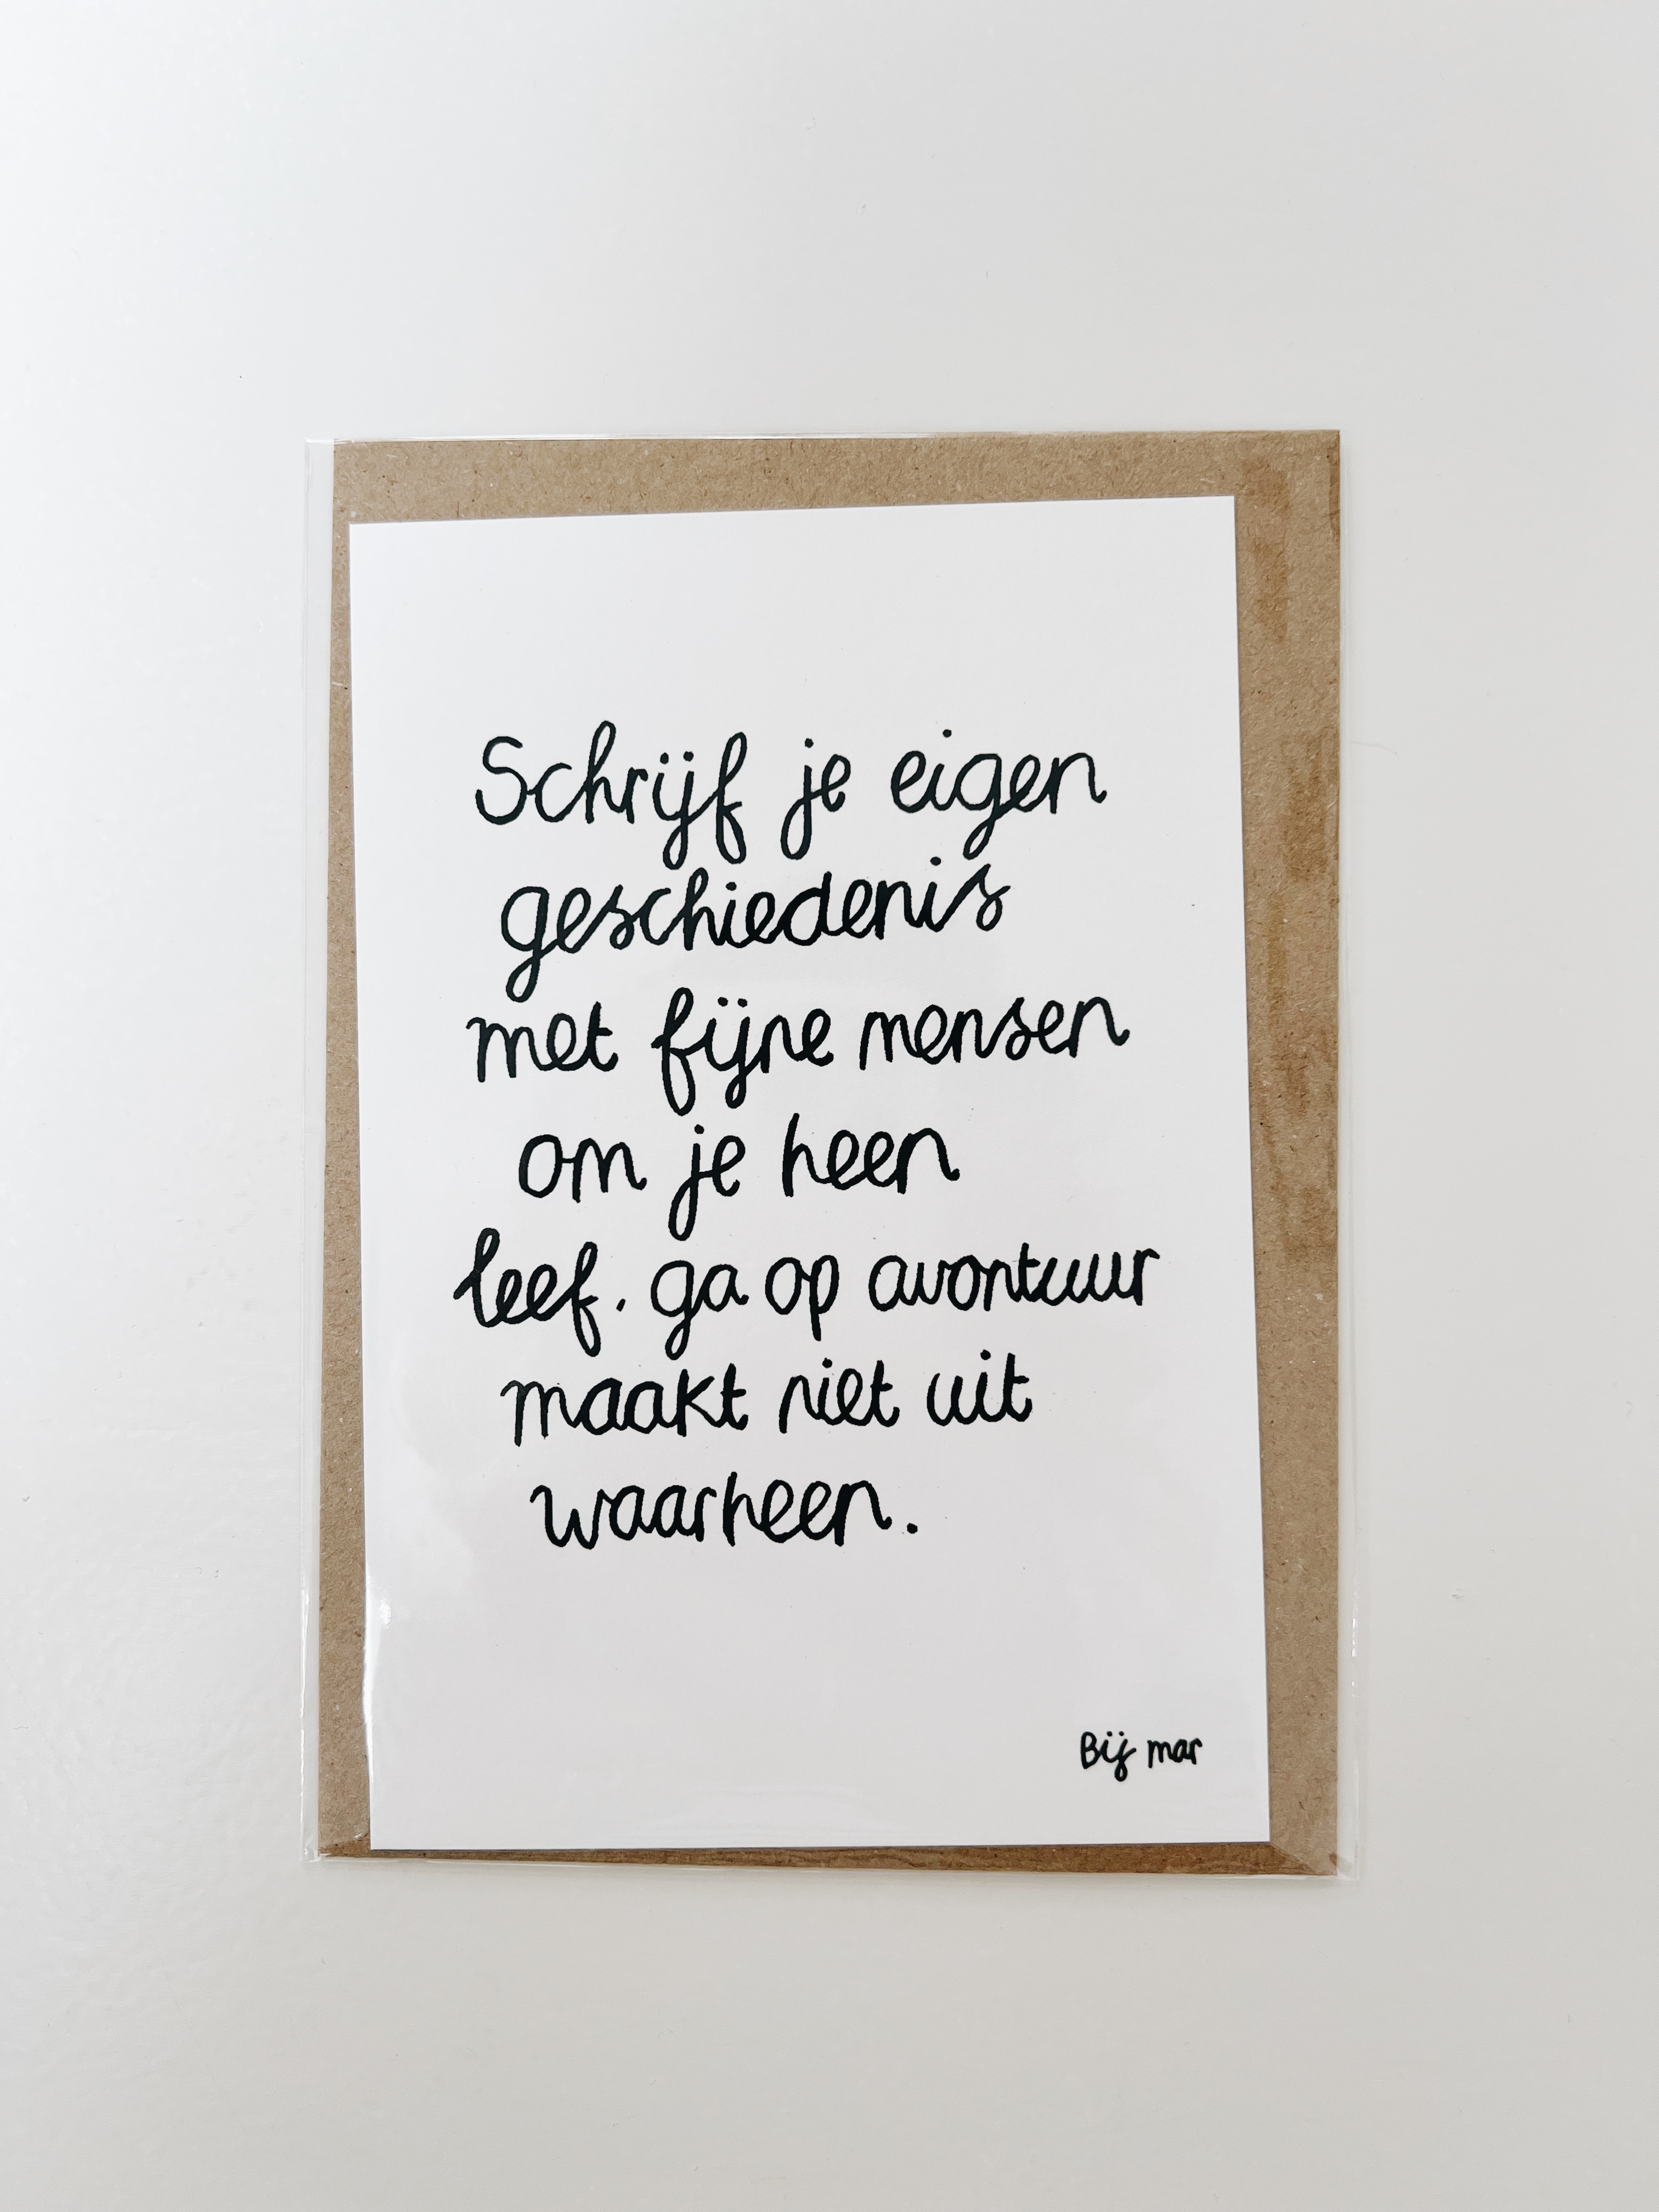 Schrijf je eigen
geschiedenis
met fijne mensen
om je heen
leef. ga op avontuur
maakt niet uit
waarheen.
Bij mar